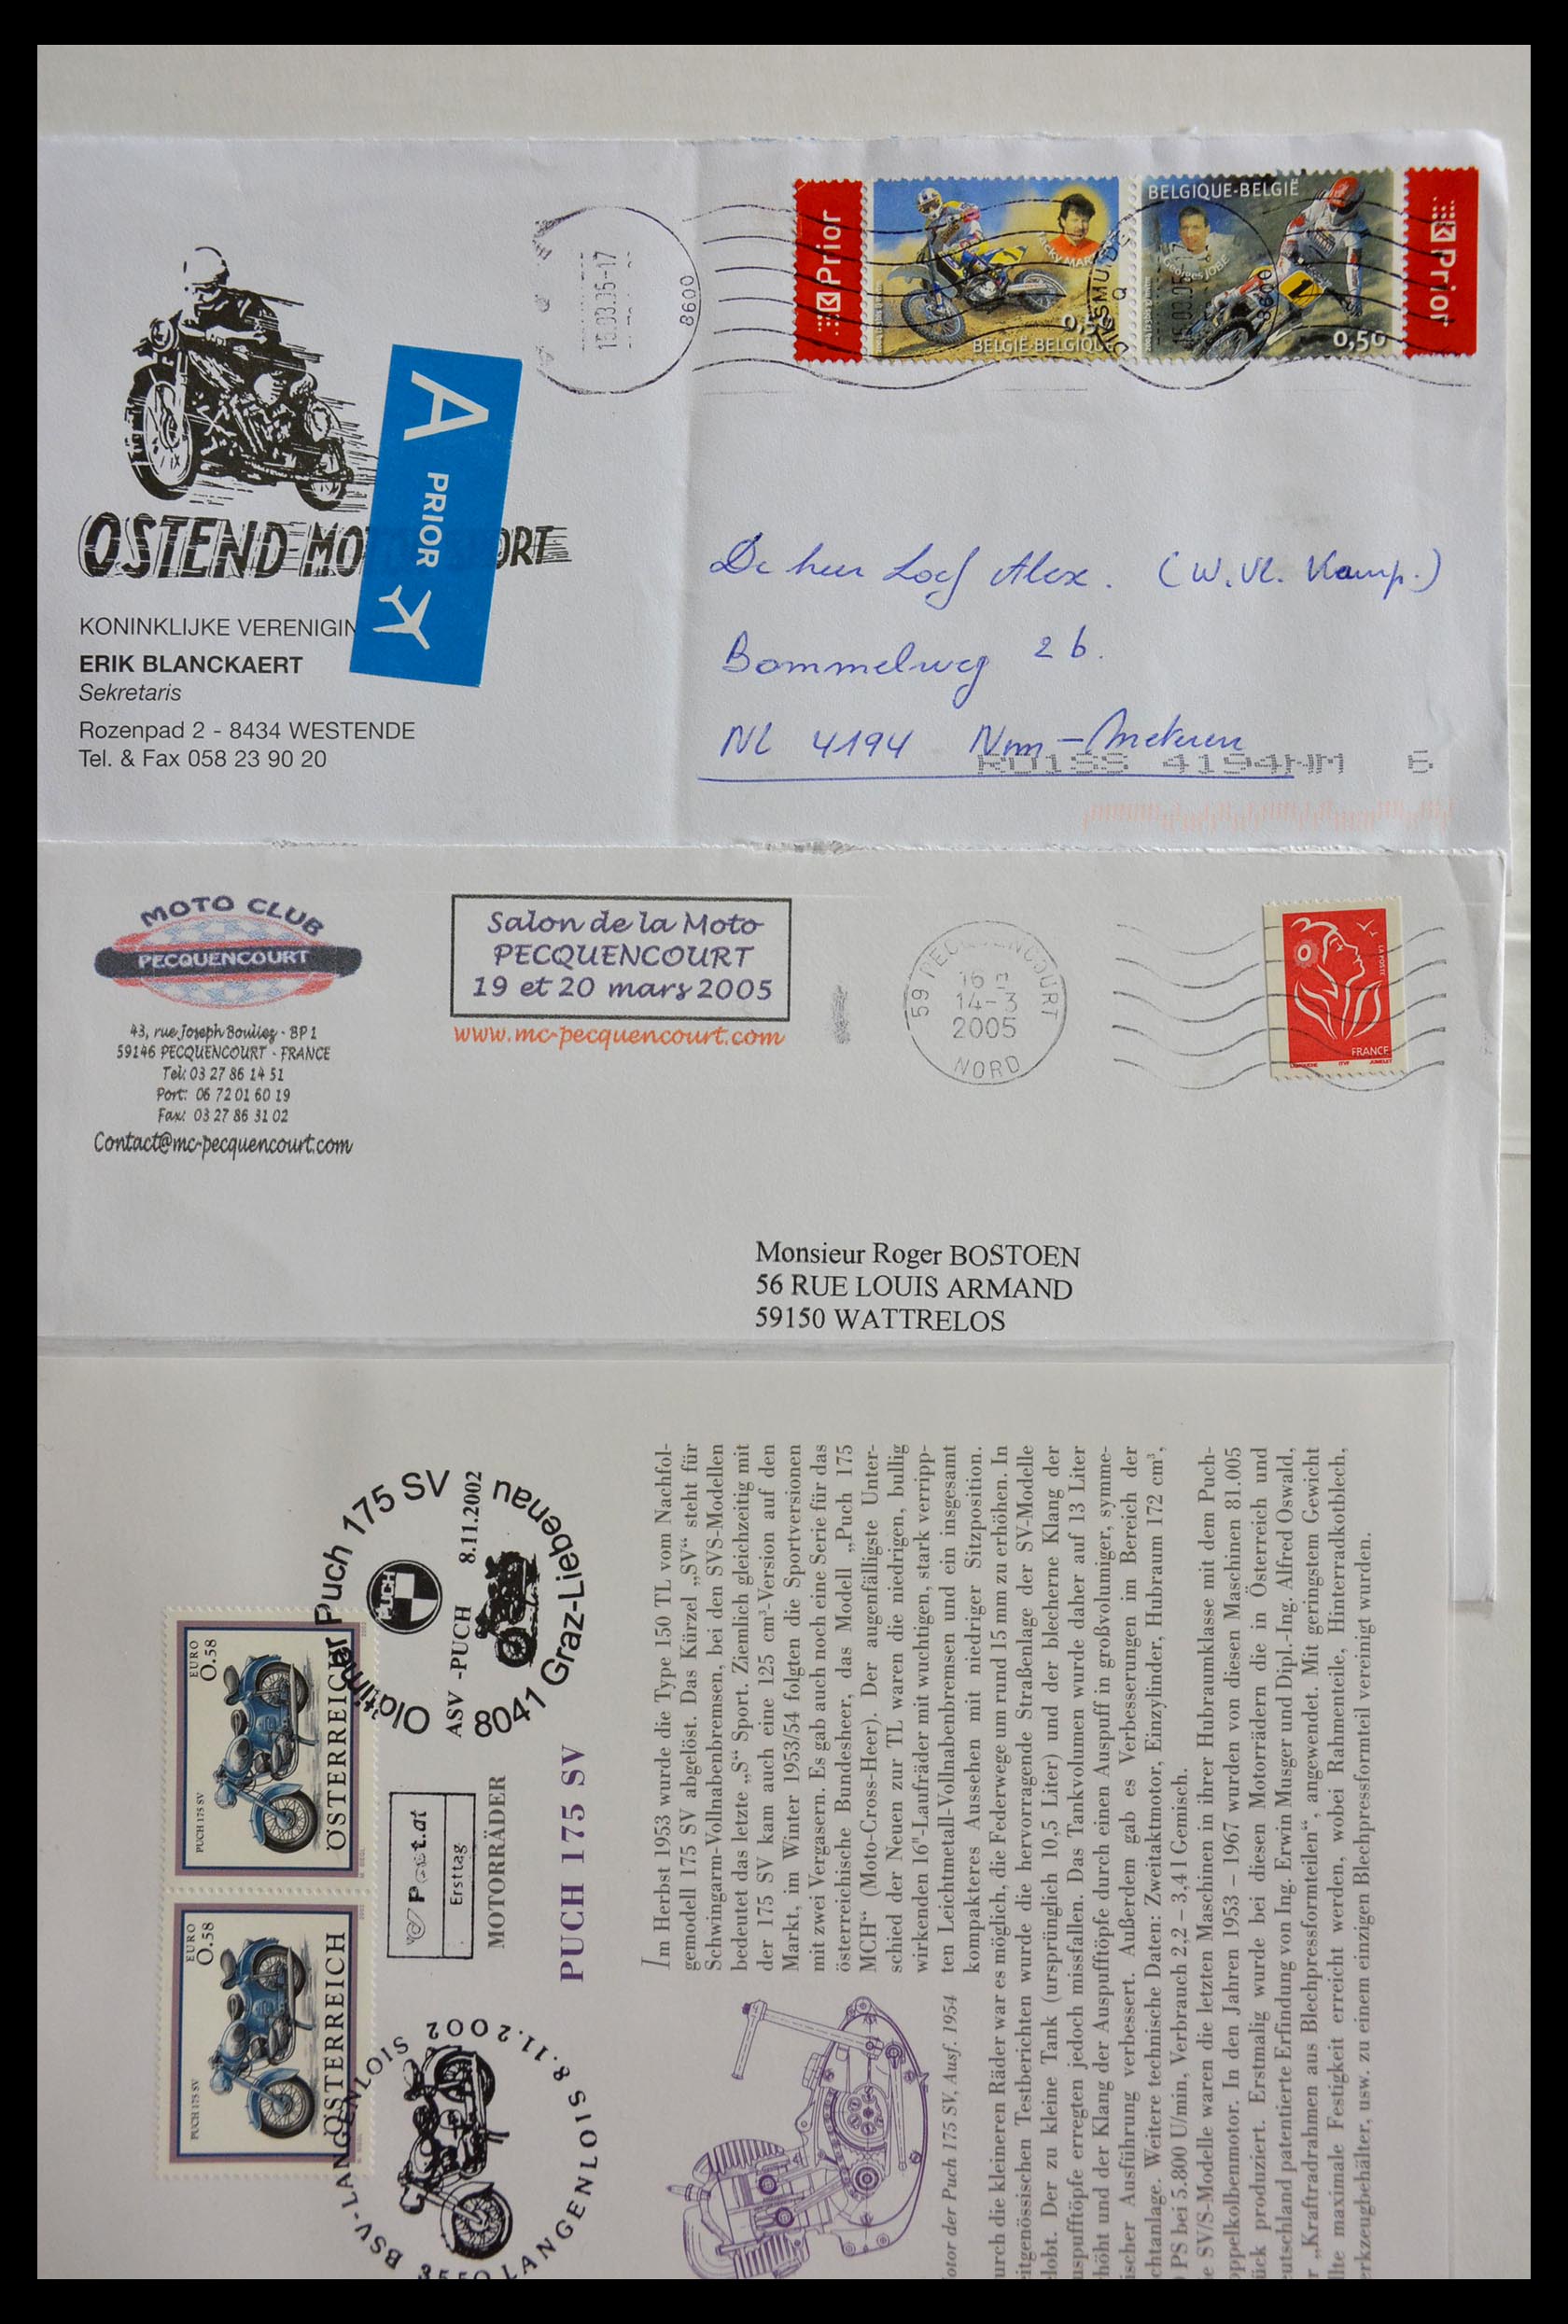 Prior
BELGIË-BELGIQUE
BELGIQUE-BELGIË
Georges JOBÉ
1
0,50
Prior
15.03.05-17
8600
8600
A PRIOR
OSTEND MO ORT
KONINKLIJKE VERENIGIN
ERIK BLANCKAERT
Sekretaris
Rozenpad 2 - 8434 WESTENDE
Tel. & Fax 058 23 90 20
De heer Loef Alex. (W. Vl. Kamp.)
Bommelweg 2b.
NL 4194 Nm - Meteren
4194NM 6
MOTO CLUB
PECQUENCOURT
43, rue Joseph Bouliez - BP 1
59146 PECQUENCOURT - FRANCE
Tel: 03 27 86 14 51
Port: 06 72 01 60 19
Fax: 03 27 86 31 02
Contact@mc-pecquencourt.com
Salon de la Moto
PECQUENCOURT
19 et 20 mars 2005
www.mc-pecquencourt.com
59 PECQUENCOURT
16 H
14-3
2005
NORD
LA POSTE
FRANCE
Monsieur Roger BOSTOEN
56 RUE LOUIS ARMAND
59150 WATTRELOS
EURO
0.58
PUCH 175 SV
ÖSTERREICH
EURO
0.58
PUCH 175 SV
ÖSTERREICH
Oldtimer Puch 175 SV
PUCH
ASV -PUCH 8.11.2002
8041 Graz-Liebenau
Post.at
Ersttag
BSV-LANGENLOIS
LANGENLOIS 8.11.2002
MOTORRÄDER
PUCH 175 SV
Im Herbst 1953 wurde die Type 150 TL vom Nachfol-
gemodell 175 SV abgelöst. Das Kürzel „SV“ steht für
Schwingarm-Vollnabenbremsen, bei den SVS-Modellen
bedeutet das letzte „S“ Sport. Ziemlich gleichzeitig mit
der 175 SV kam auch eine 125 cm³-Version auf den
Markt, im Winter 1953/54 folgten die Sportversionen
mit zwei Vergasern. Es gab auch noch eine Serie für das
österreichische Bundesheer, das Modell „Puch 175
MCH“ (Moto-Cross-Heer). Der augenfälligste Unter-
schied der Neuen zur TL waren die niedrigen, bullig
wirkenden 16"-Laufräder mit wuchtigen, stark verripp-
ten Leichtmetall-Vollnabenbremsen und ein insgesamt
kompakteres Aussehen mit niedriger Sitzposition.
otor der Puch 175 SV, Ausf. 1954
urch die kleineren Räder war es möglich, die Federwege um rund 15 mm zu erhöhen. In
eitgenössischen Testberichten wurde die hervorragende Straßenlage der SV-Modelle
elobt. Der zu kleine Tank (ursprünglich 10,5 Liter) und der blecherne Klang der
uspufftöpfe erregten jedoch missfallen. Das Tankvolumen wurde daher auf 13 Liter
höht und der Klang der Auspufftöpfe durch einen Auspuff in großvolumiger, symme-
ischer Ausführung verbessert. Außerdem gab es Verbesserungen im Bereich der
chtanlage. Weitere technische Daten: Zweitaktmotor, Einzylinder, Hubraum 172 cm³,
PS bei 5.800 U/min, Verbrauch 2,2 – 3,4 l Gemisch.
e SV/S-Modelle waren die letzten Maschinen in ihrer Hubraumklasse mit dem Puch-
oppelkolbenmotor. In den Jahren 1953 – 1967 wurden von diesen Maschinen 81.005
ück produziert. Erstmalig wurde bei diesen Motorrädern die in Österreich und
eutschland patentierte Erfindung von Ing. Erwin Musger und Dipl.-Ing. Alfred Oswald,
r „Kraftradrahmen aus Blechpressformteilen“, angewendet. Mit geringstem Gewicht
llte maximale Festigkeit erreicht werden, wobei Rahmenteile, Hinterradkotblech,
erkzeugbehälter, usw. zu einem einzigen Blechpressformteil vereinigt wurden.